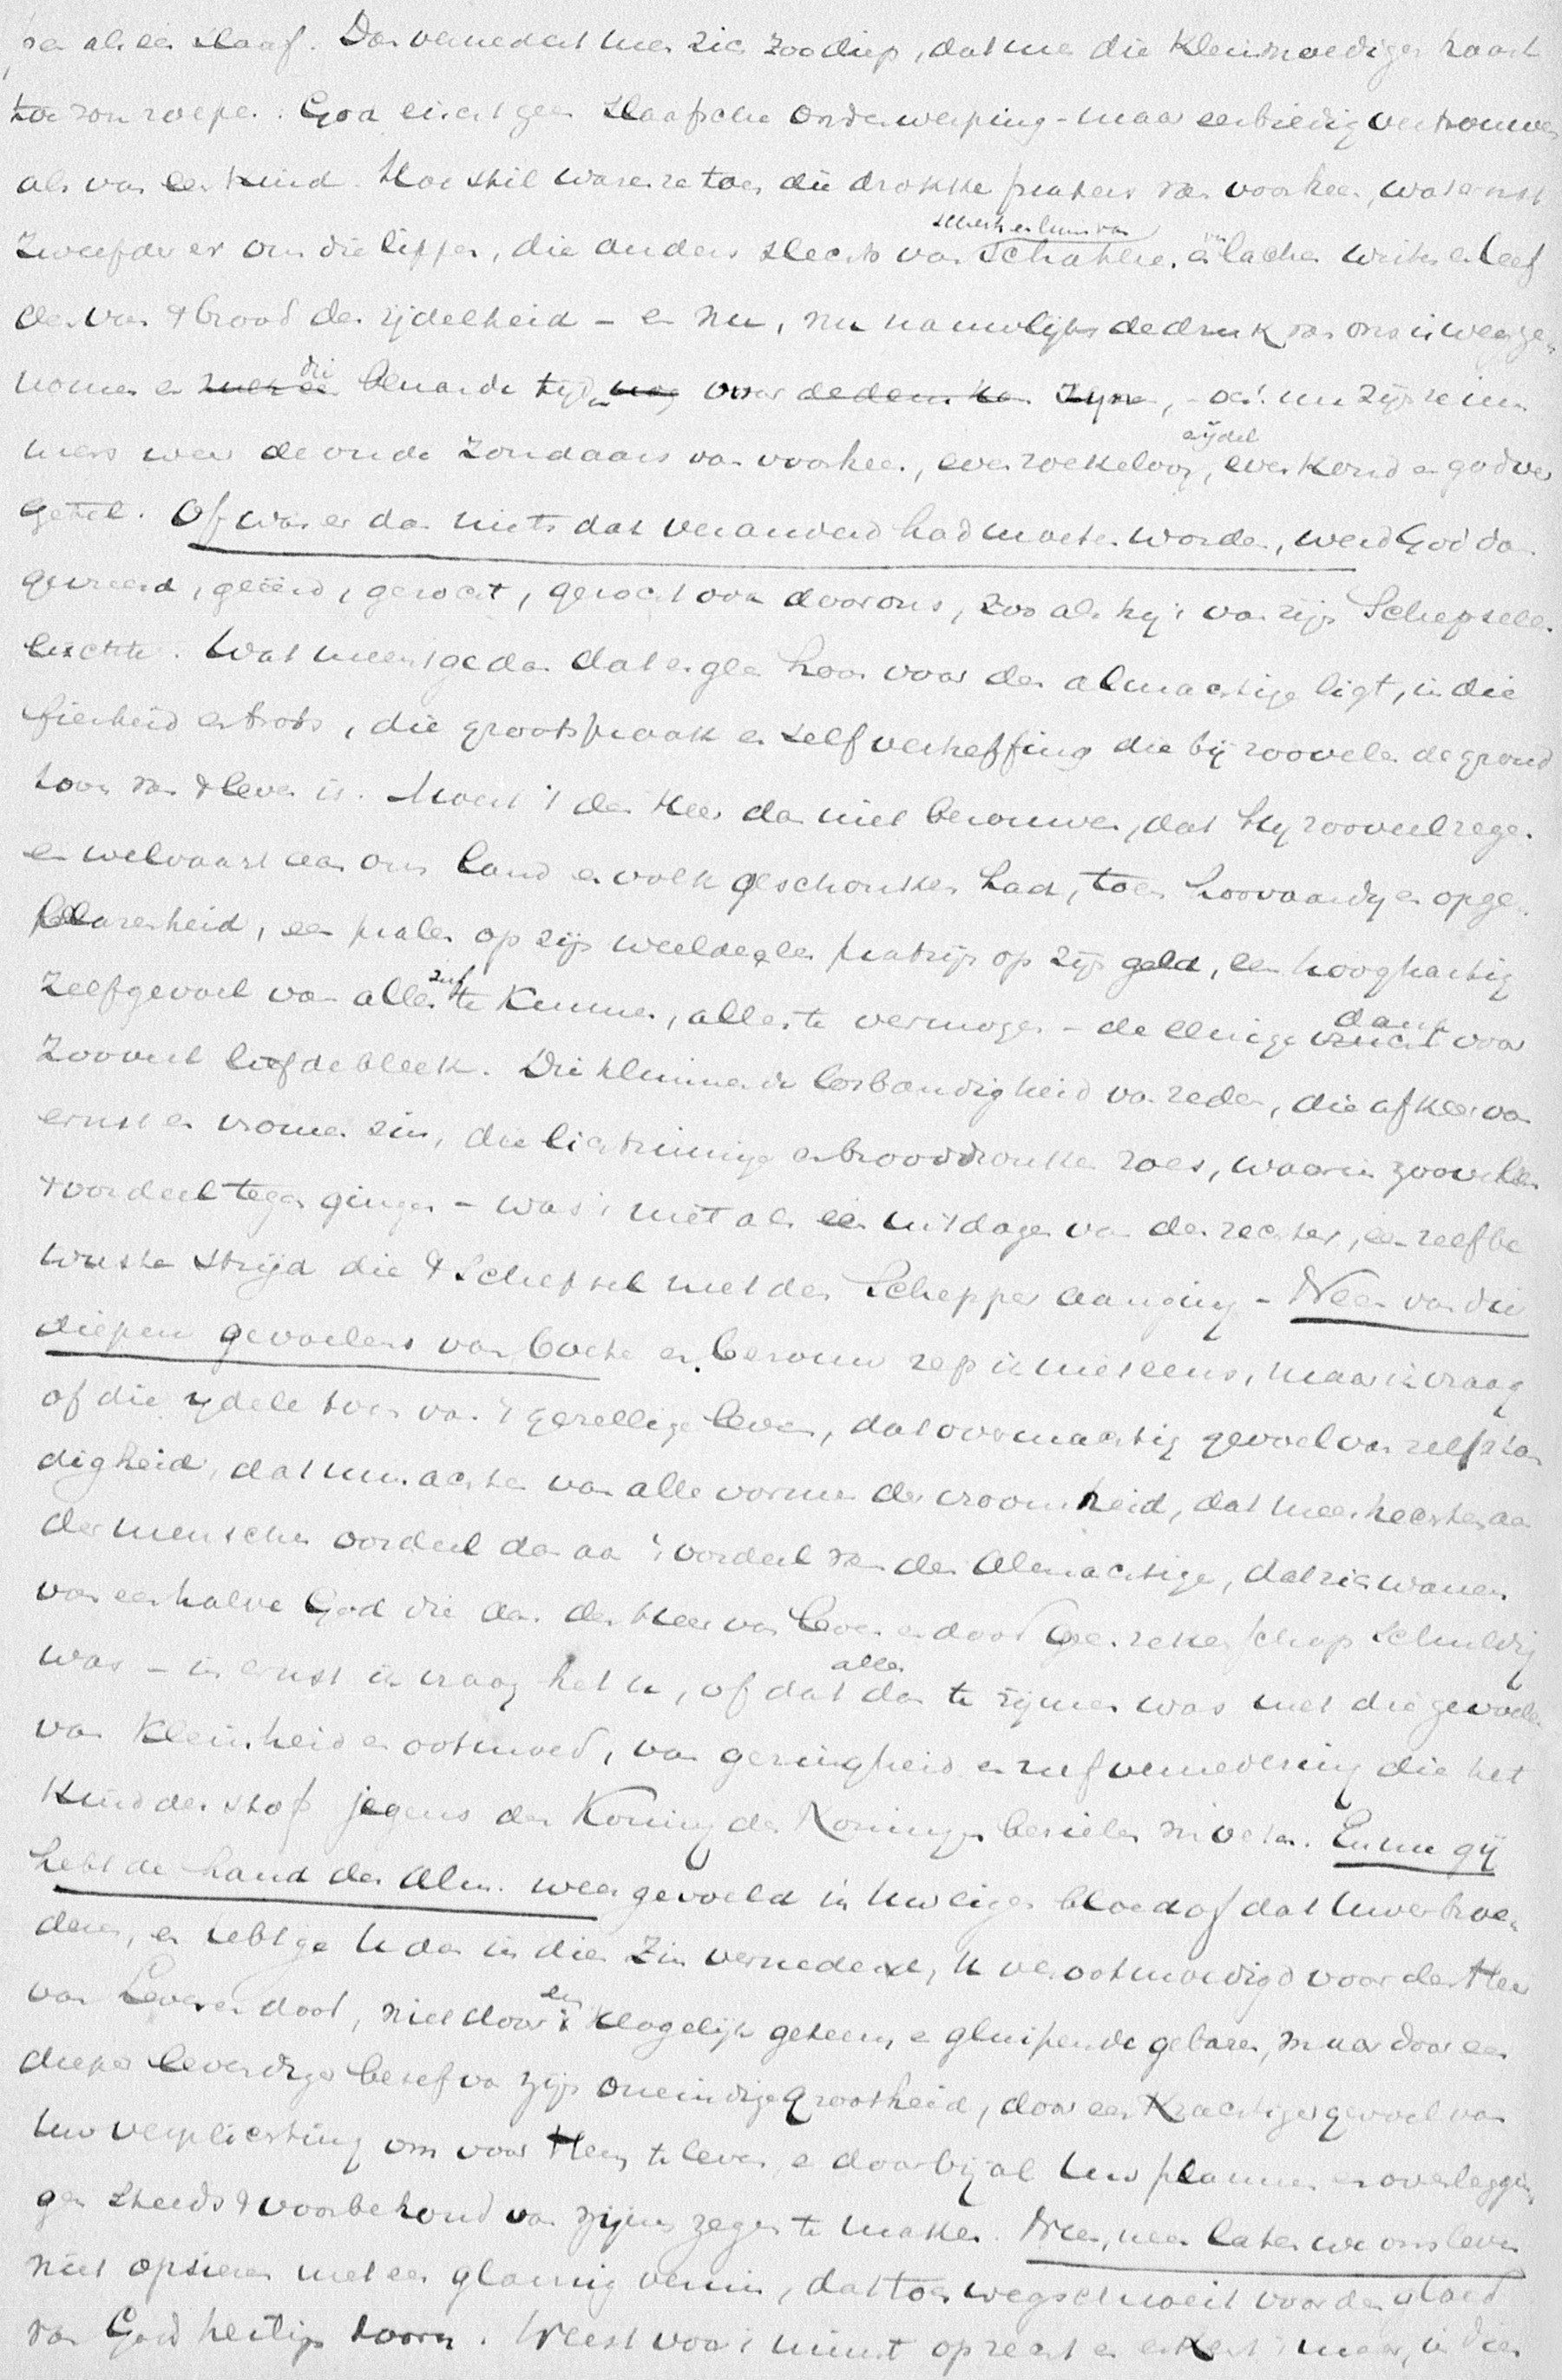 als een slaaf. Dan vernedert men zich zoo diep, dat men die kleinmoedigen haast
toe zou roepen: God eischt geen slaafsche onderwerping - maar eerbiedig vertrouwen
als van een kind. Hoe stil waren ze toen die drokke praters van voorheen, wat ernst
zweefde er om die lippen, die anders slechts van schateren en van lachen wisten en leef
den van 't brood der ijdelheid - en nu, nu nauwlijks de druk van ons is wegge
nomen en die benarde tijd voor, - och! nu zijn ze im
mers weer de oude zondaars van voorheen, even roekeloos, ijdel, even koud en godver
geten. Of was er dan niets dat veranderd had moeten worden, werd God dan
gevreesd, geëerd, gezocht, gezocht ook door ons, zooals hij 't van zijn schepselen
eischte. Wat meent ge dan dat er geen hoon voor den almachtige ligt, in die
fierheid en trots, die grootspraak en zelfverheffing die bij zoovelen de grond
toon van 't leven is. Moest 't den Heer dan niet berouwen, dat Hij zooveel zegen
en welvaart aan ons land en volk geschonken had, toen hoovaardij en opge
blazenheid, een pralen op zijn weelde, een prat zijn op zijn geld, een hooghartig
zelfgevoel van alles zelf te kunnen, alles te vermogen - de eenige dank voor
zooveel liefde bleek. Die klimmende losbandigheid van zeden, die afkeer van
ernst en vromen zin, die lichtzinnige en brooddronken roes, waarin zoovelen
't oordeel tegen gingen - was 't niet als een uitdagen van den rechter, een zelfbe
wuste strijd die 't schepsel met den Schepper aanging - Neen van die
diepere gevoelens van boete en berouw rep ik niet eens, maar ik vraag
of die ijdele toon van 't gezellige leven, dat overmachtig gevoel van zelfstan
digheid, dat minachten van alle vormen der vroomheid, dat meer hechten aan
der menschen oordeel dan aan 't oordeel van den Almachtige, dat zich wanen
van een halve God die aan den Heer van leven en dood geen rekenschap schuldig
was - in ernst ik vraag het u, of dat alles dan te rijmen was met die gevoelens
van kleinheid en ootmoed, van geringheid en zelfvernedering die het
kind der stof jegens den Koning der Koningen bezielen moeten. En nu gij
hebt de hand der Alm. weer gevoeld in uw eigen bloed of dat uwer broe
deren, en hebt ge u dan in dien zin vernederd, u verootmoedigd voor den Heer
van Leven en dood, niet door een klagelijk geteem en gluipende gebaren, maar door een
dieper levendiger besef van zijn oneindige grootheid, door een krachtiger gevoel van
uw verplichting om voor Hem te leven, en daarbij al uw plannen en overleggin
gen steeds 't voorbehoud van zijnen zegen te maken. Neen, neen laten we ons leven
niet opsieren met een glansrig vernis, dat toch wegschmelt voor den gloed
van Gods heiligen toorn. Weest voor 't minst oprecht en erkent 't maar, in dien